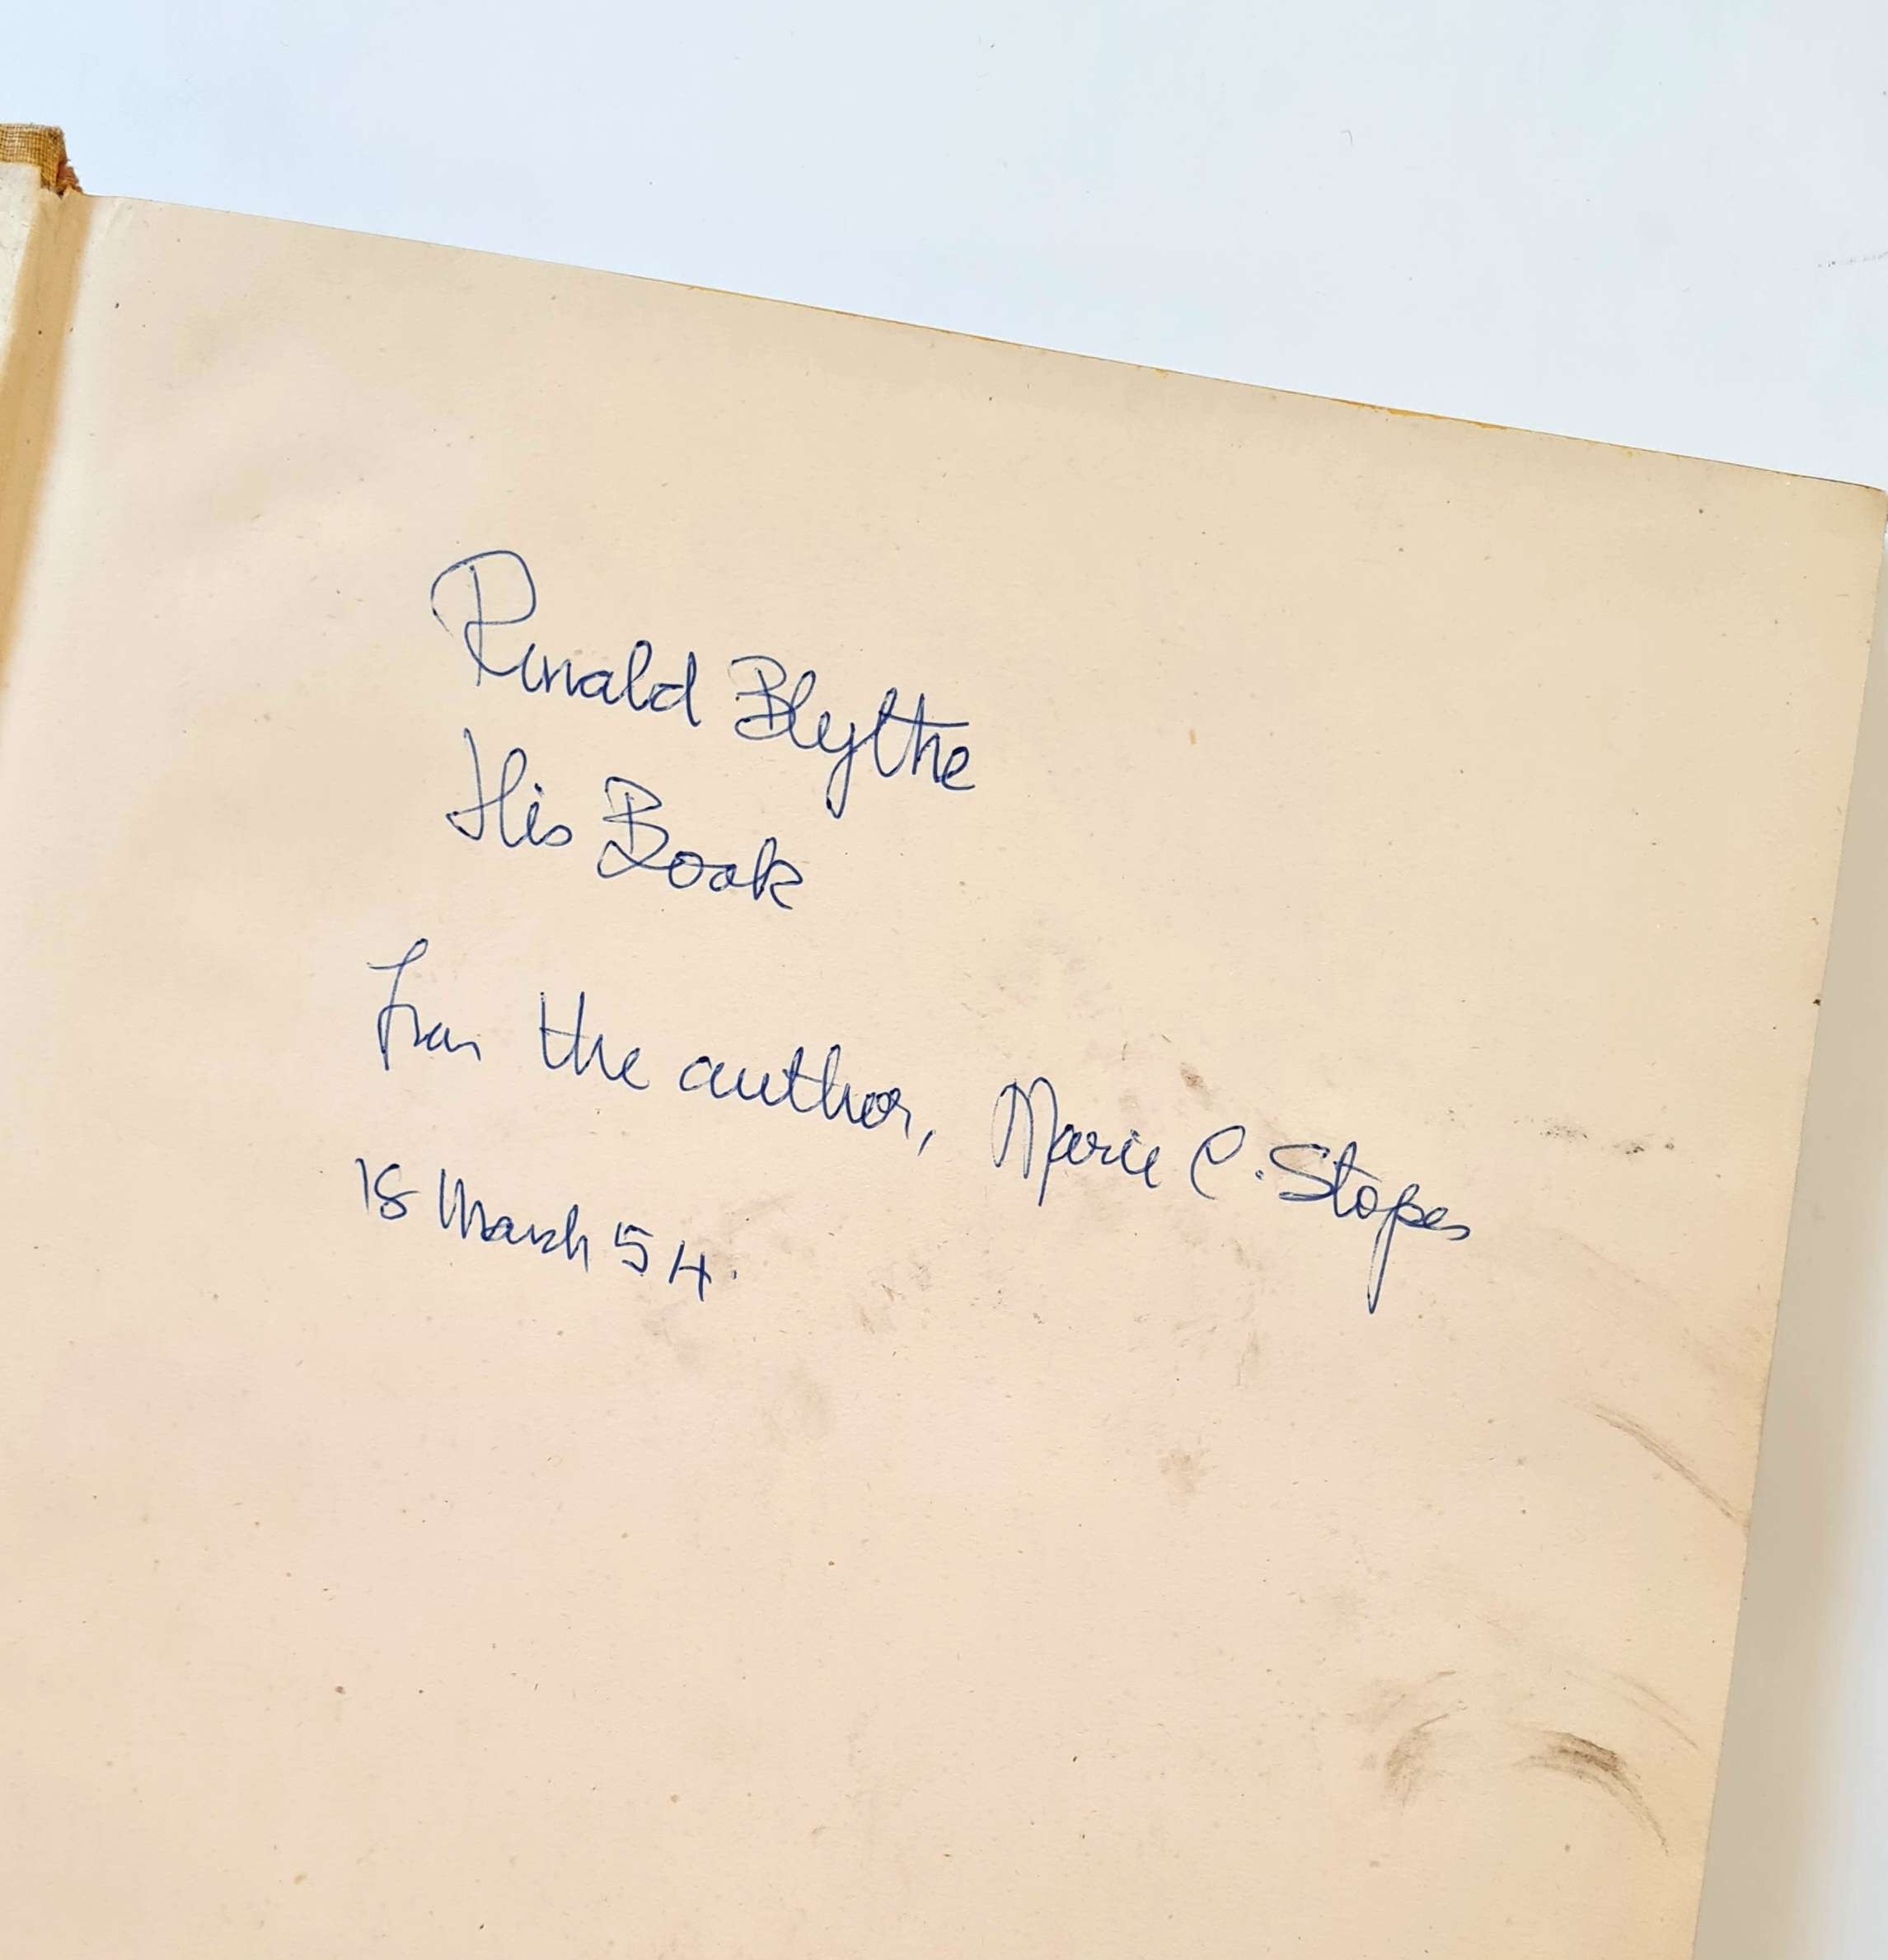 Ronald Blythe
His Book
from the author, Marie C. Stopes
18 March 54.